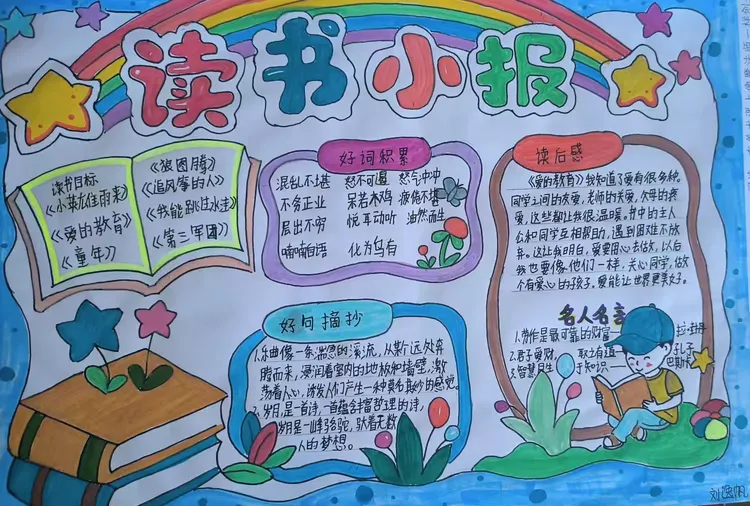 读书小报
读书目标
《小英雄雨来》
《爱的教育》
《童年》
《狼图腾》
《追风筝的人》
《我能跳过水洼》
《第三军团》
好词积累
混乱不堪 怒不可遏 怒气冲冲
不务正业 呆若木鸡 疲倦不堪
层出不穷 悦耳动听 油然而生
喃喃自语 化为乌有
好句摘抄
1.乐曲像一条湍急的溪流，从斯远处奔
腾而来，浸润着室内的地板和墙壁，激
荡着人心，诱发人们产生一种莫名其妙的感觉。
2.岁月，是一首诗，一首蕴含丰富哲理的诗，
岁月是一峰骆驼，驮着无数
人的梦想。
读后感
《爱的教育》我知道了爱有很多种。
同学之间的友爱，老师的关爱，父母的疼
爱，这些都让我很温暖，书中的主人
公和同学互相帮助，遇到困难不放
弃。这让我明白，爱要用心去做，以后
我也要像他们一样，关心同学，做
个有爱心的孩子。爱能让世界更美好。
名人名言
1.劳作是最可靠的财富
2.君子爱财， 取之有道 孔子
3.智慧
刘